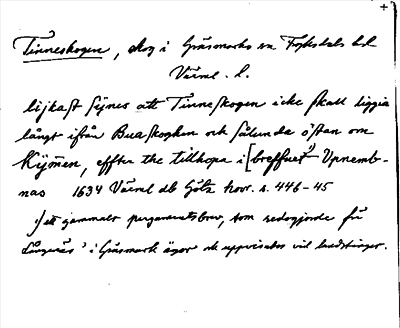 +
Tinneskogen, skog i Gräsmarks sn Fryksdals hd
Värml. l.
lijkast synes att Tinneskogen icke skall liggia
långt ifrån Buaskoghen och sålunda östan om
Kijmen, effter the tillhopa i [breffuet¹⁾ Vpnemb-
nas 1634 Värml db Göta hovr. s. 446-45
¹⁾ ett gammalt pergamentsbrev, som redogjorde för
Långenäs' i Gräsmark ägor och uppvisades vid landstinget.